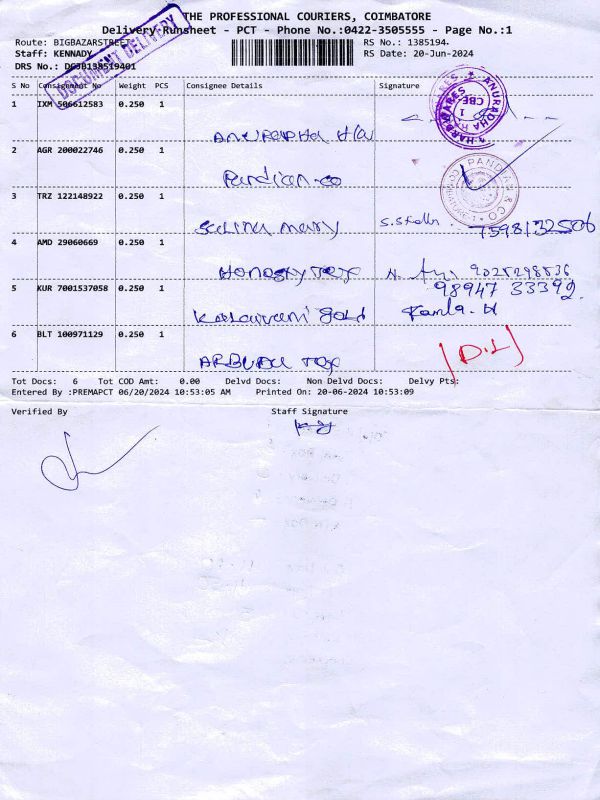 THE PROFESSIONAL COURIERS, COIMBATORE
Delivery Runsheet - PCT - Phone No.:0422-3505555 - Page No.:1
Route: BIGBAZARSTREET
RS No.: 1385194
Staff: KENNADY
RS Date: 20-Jun-2024
DRS No.:
DOCUMENT DELIVERY
S No Consignment No Weight PCS Consignee Details Signature
1 IXM 506612583 0.250 1
ANURADHA H/W
ANURADHA HARDWARES CBE 1
2 AGR 200022746 0.250 1
Pandian-co
PANDIAN & CO
3 TRZ 122148922 0.250 1
Selina mary
7598132506
4 AMD 29060669 0.250 1
Honesty Tex
9025298536
5 KUR 7001537058 0.250 1
98947 33392
Kalaivani gold
Kamla. H
6 BLT 100971129 0.250 1
ARBUDU Tex
(D.L)
Tot Docs: 6 Tot COD Amt: 0.00 Delvd Docs: Non Delvd Docs: Delvy Pts:
Entered By :PREMAPCT 06/20/2024 10:53:05 AM Printed On: 20-06-2024 10:53:09
Verified By Staff Signature